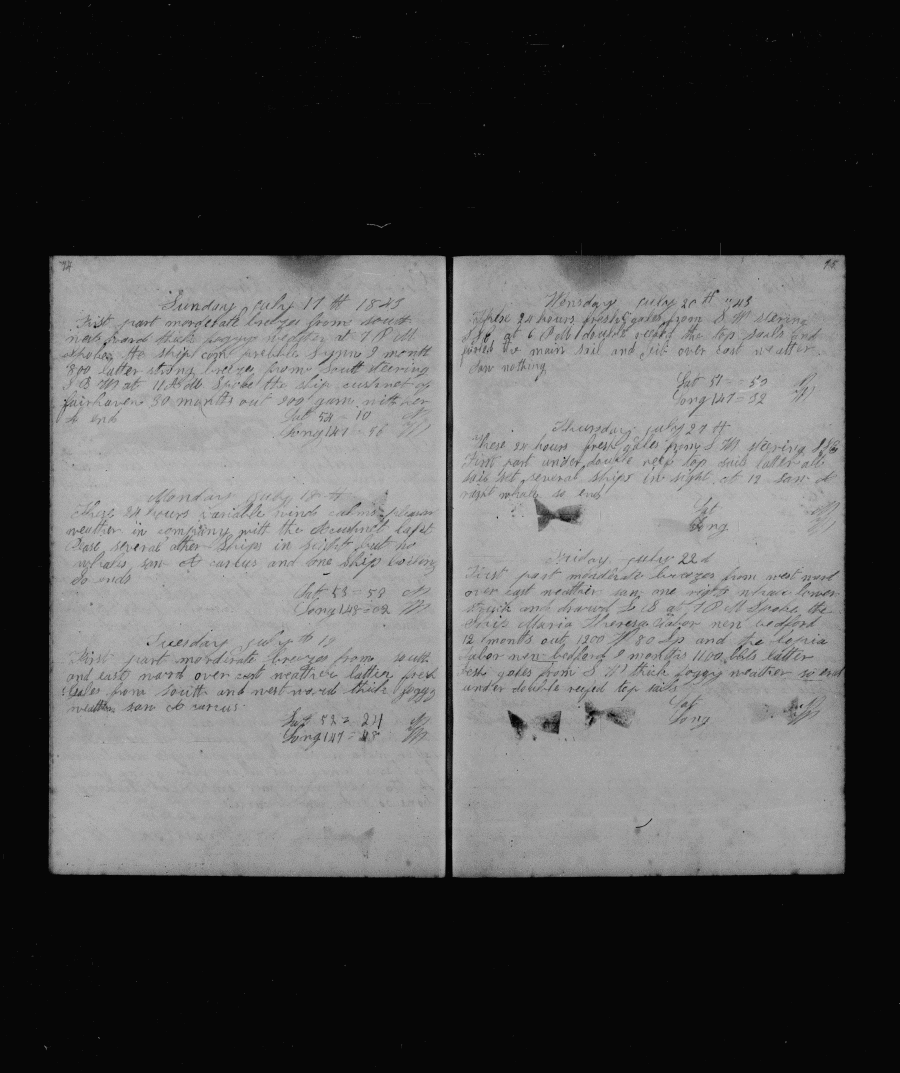 Sunday july 17 th 1843
First part mordetate breezes from south
west ward thick foggy wether at 7 P M
spoke the ship com prebble Lynn 9 month
800 latter strong breezes from South steering
S B W at 11 A M Spoke the ship cushnet of
fairhaven 30 months out 900 gam with her
so end
Lat 54 = 10 N
Long 147 = 56 W
Monday july 18 th
These 24 hours variable wind calms plesant
weather in company with the Acushnet Capt
Pease several other Ships in sight but no
whales saw A carcus and one ship boiling
So ends
Lat 53 = 58 N
Long 148 = 02 W
Tuesday july th 19
First part mordirate breezes from south
and east ward over cast neather latter fresh
Gales from South and west ward thick foggy
weather saw A carcus
Lat 52 = 24 N
Long 147 = 48 W
95
Wensday july 20 th 43
These 24 hours fresh gales from S W stering
at 6 P M double reeft the top sails and
furled the main sail and jib over cast weatter
Saw nothing
Lat 51 = 50 N
Long 147 = 32 W
Thursday july 21 th
These 24 hours fresh gales from S W steering
First part under double reep top sails latter all
sail set several ships in sight at 12 saw A
whale so ends
Lat N
Long W
Friday july 22 d
First part mordirate breezes from west ward
over cast neather saw one right whale lower
Struck and drawd at 7 P M Spoke the
Ship Maria Theresa Tabor new bedford
12 months out 1200 W 80 Sp and the
Tabor new bedford 9 months 1100 bbls latter
gales from S W thick foggy weather so end
under double reefed top sails
Lat N
Long W